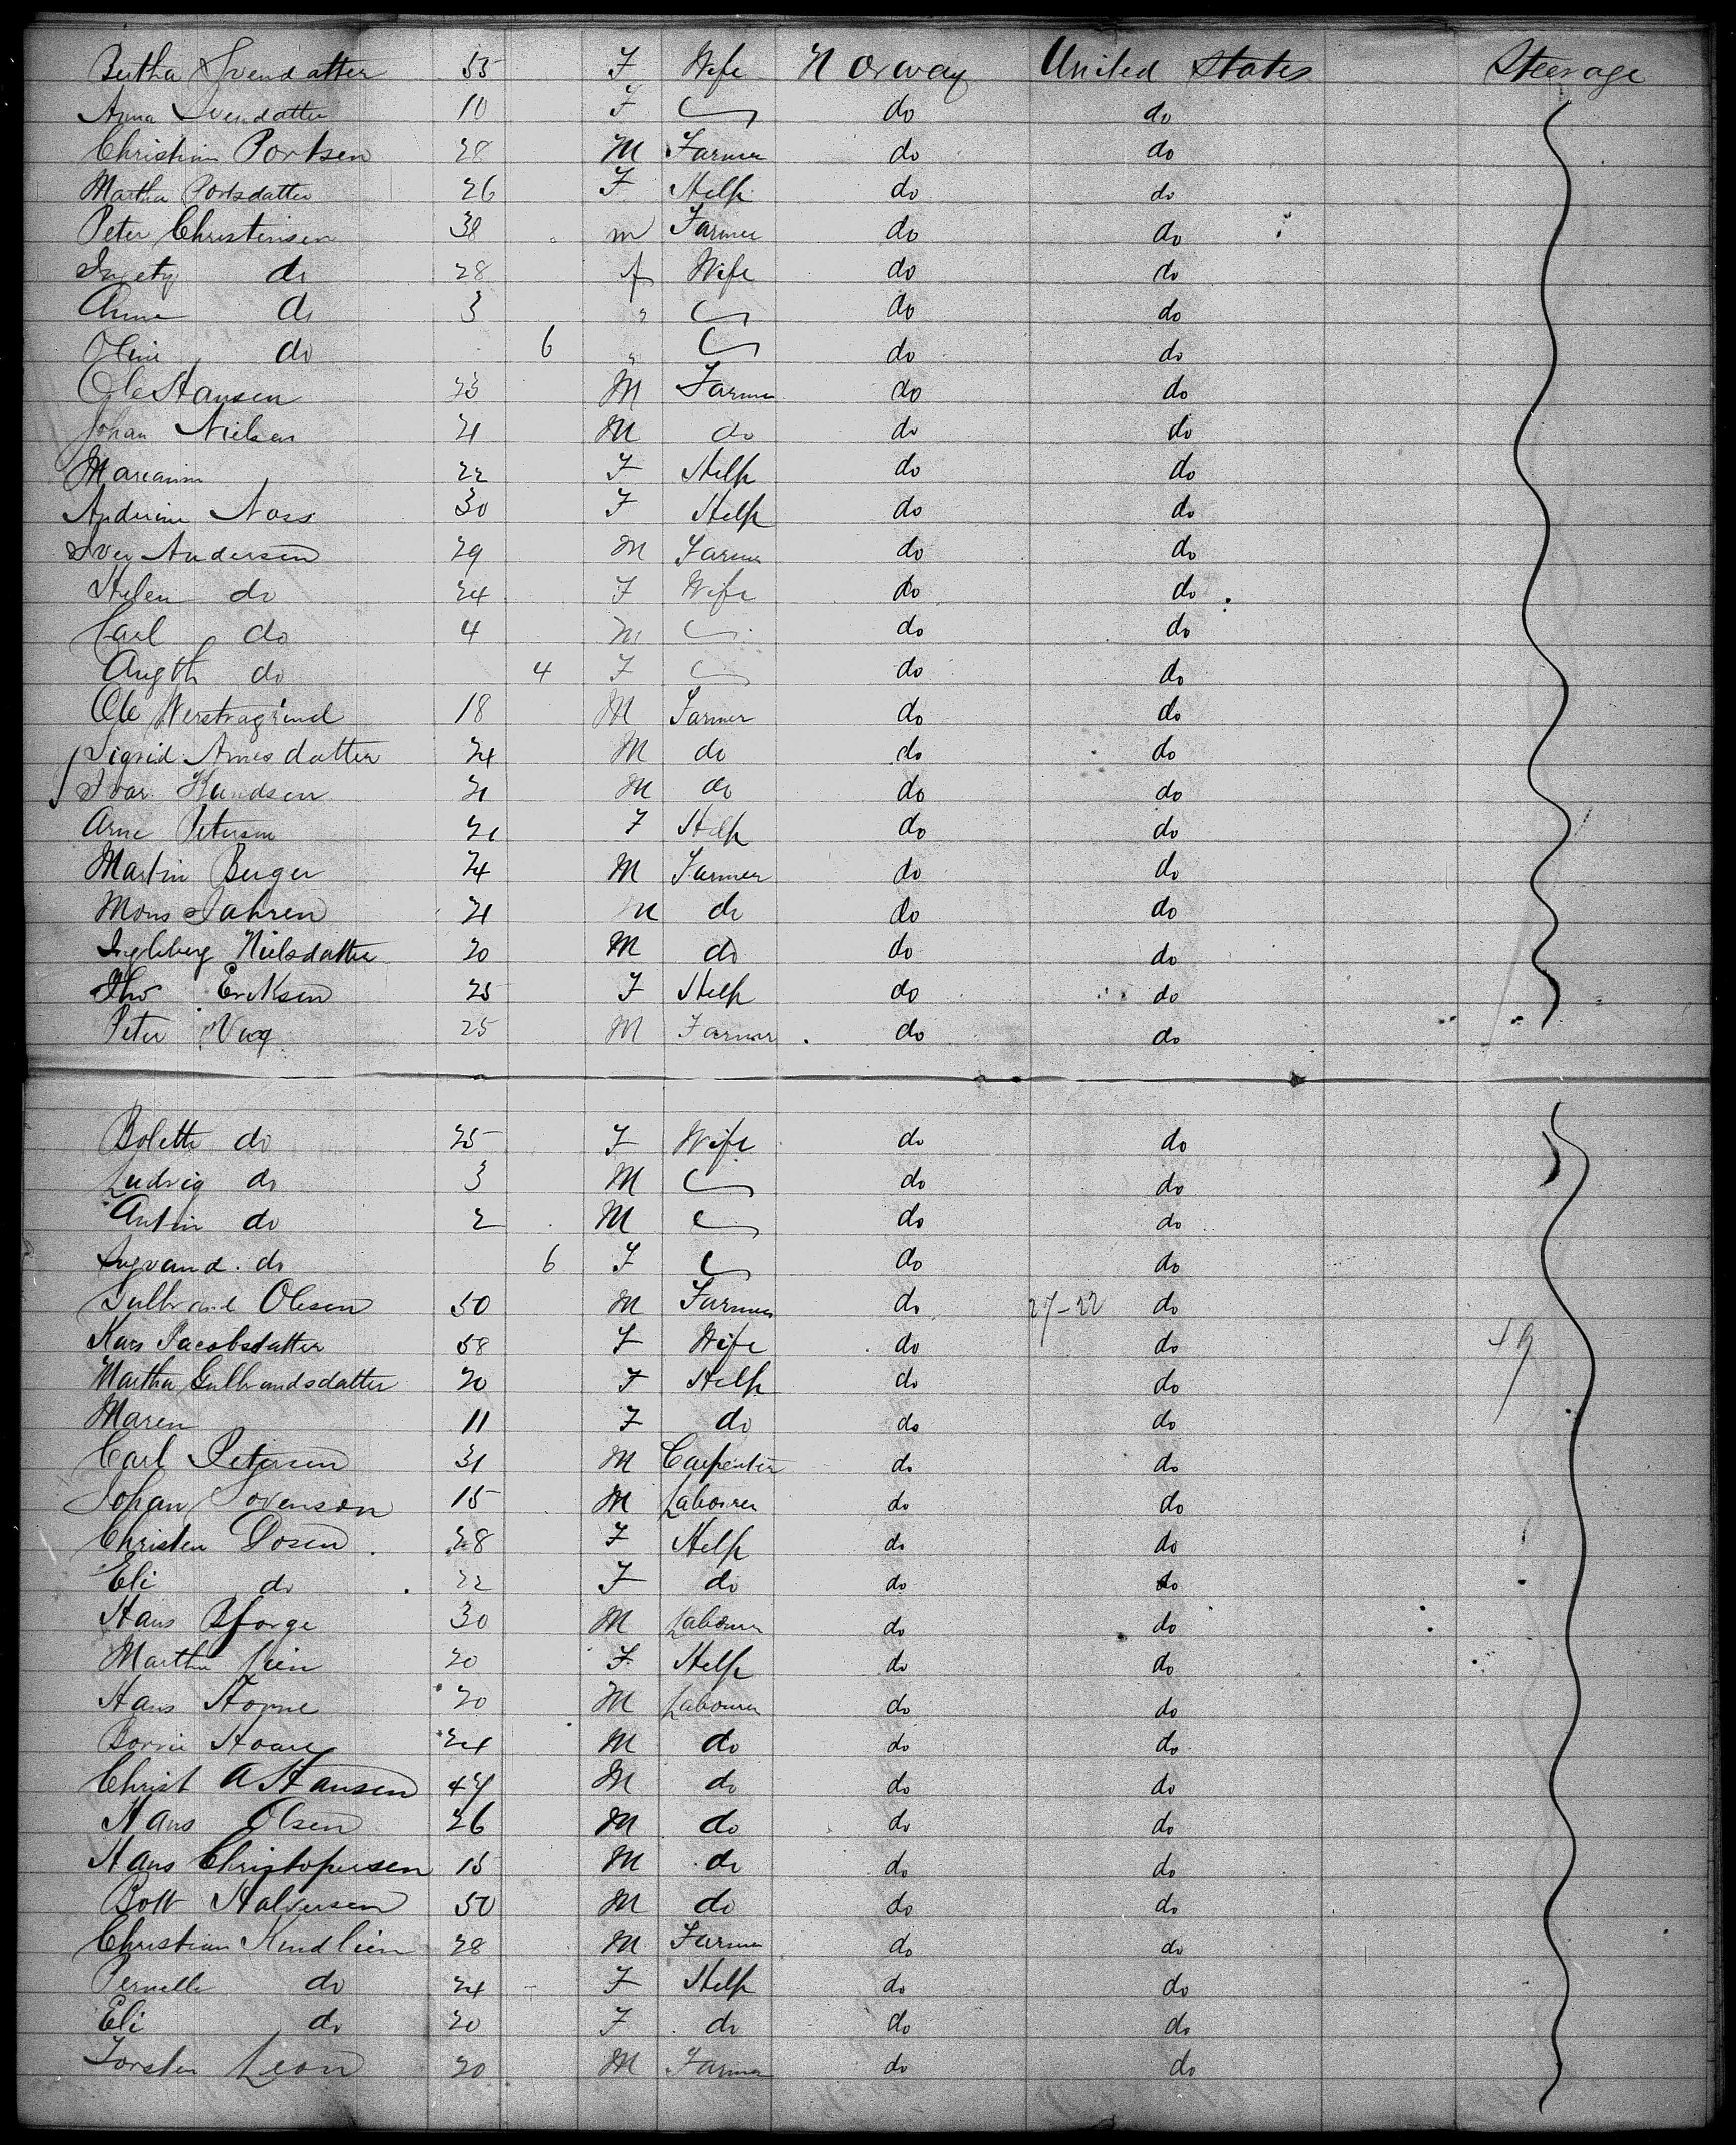 Bertha Svendatter 55 F Wife Norway United States Steerage
Anna Svendatter 10 F do do
Christian Portsen 28 M Farmer do do
Martha Portsdatter 26 F Help do do
Peter Christensen 38 m Farmer do do
do 28 f Wife do do
Anne do 3 " do do
Oline do 6 " do do
Ole Hansen 23 M Farmer do do
Johan Nielsen 21 M do do do
Marianne 22 F Help do do
Andrine Noss 30 F Help do do
Iver Andersen 29 M Farmer do do
Helen do 24 F Wife do do
Carl do 4 M do do
Augth do 4 F do do
Ole Werstragrind 18 M Farmer do do
Sigrid Arnesdatter 24 M do do do
Ivar Knudsen 21 M do do do
Arne Petersen 21 F Help do do
Martin Berger 24 M Farmer do do
Mons Jahren 21 M do do do
Ingleberg Nielsdatter 20 M do do do
Tho Eriksen 25 F Help do do
Peter Vig 25 M Farmer do do
Bolette do 25 F Wife do do
Ludvig do 3 M do do
Antin do 2 M do do
Ingvand do 6 F do do
Gulbrand Olesen 50 M Farmer do 27-22 do
Kars Jacobsdatter 58 F Wife do do 49
Martha Gulbrandsdatter 20 F Help do do
Maren 11 F do do do
Carl Petersen 31 M Carpenter do do
Johan Sovenson 15 M Labourer do do
Christen Dosen 28 F Help do do
Eli do 22 F do do do
Hans Bforge 30 M Labourer do do
Martha Lien 20 F Help do do
Hans Hovne 20 M Labourer do do
24 M do do do
Christ A Hansen 47 M do do do
Hans Olsen 26 M do do do
Hans Christopersen 15 M do do do
Bott Halversen 50 M do do do
Christian Kindlien 28 M Farmer do do
Pernelle do 24 F Help do do
Eli do 20 F do do do
Torsten Leon 20 M Farmer do do